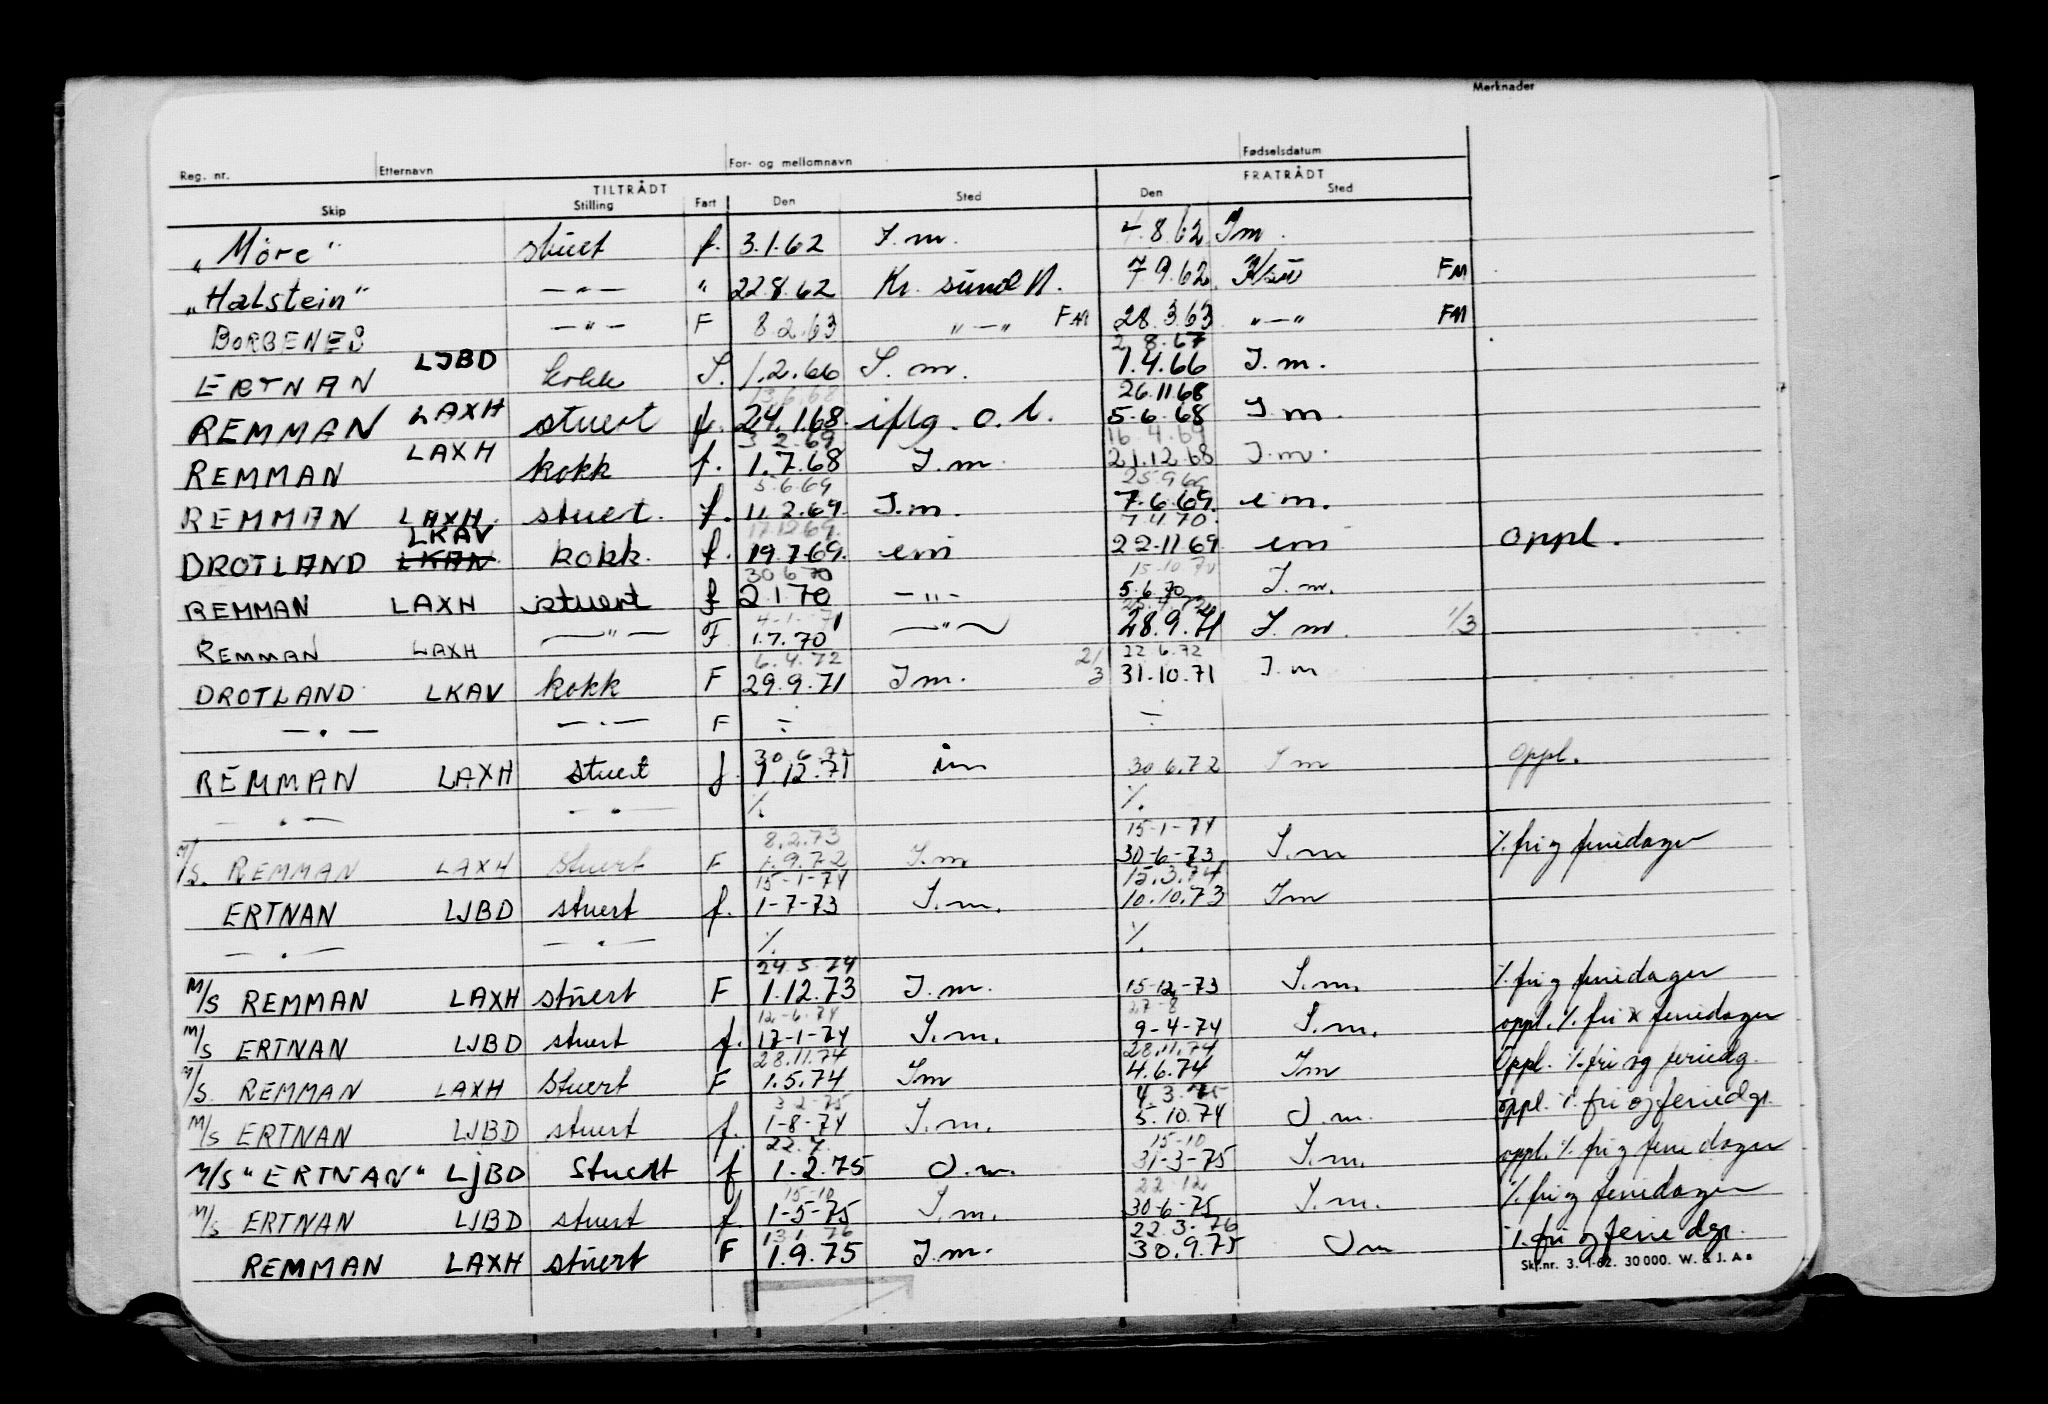 Merknader
Reg. nr. Etternavn For- og mellomnavn Fødselsdatum
TILTRÅDT FRATRÅDT
Skip Stilling Fart Den Sted Den Sted
„Möre" stuert f. 3.1.62 I.m. 4.8.62 Im.
„Halstein" —"— " 22.8.62 Kr. sund N. 7.9.62 FM
BORGENES —"— F 8.2.63 "—" FM 28.3.63 "—" FM
2.8.67
ERTNAN LJBD kokk S. 1.2.66 I.m. 1.4.66 I.m.
13.6.68 26.11.68
REMMAN LAXH stuert f. 24.1.68. iflg. o.b. 5.6.68 I.m.
3.2.69 16.4.69
REMMAN LAXH kokk f. 1.7.68 I.m. 21.12.68 I.m.
5.6.69 25.9.69
REMMAN LAXH. stuert. f. 11.2.69. I.m. 7.6.69. em.
17.12.69. 7.4.70.
DROTLAND LKAN LKAV kokk. f. 19.7.69. em 22.11.69. em oppl.
30.6.70 15.10.70
REMMAN LAXH stuert f 2.1.70 —"— 5.6.70 I.m.
4-1-71
REMMAN LAXH —"— F 1.7.70 —"— 28.9.71 I.m. 1/3
6.4.72 22.6.72
DROTLAND LKAV kokk F 29.9.71 I.m. 2/3 31.10.71 I.m
—"— —"— F ÷ ÷
30.6.72
REMMAN LAXH stuert f. 1.12.71 im 30.6.72 Im oppl.
—"— —"— %. %.
8.2.73 15-1-74
M/S. REMMAN LAXH stuert F 1.9.72 I.m 30-6-73 I.m % fri og feriedager
15-1-74 15.3.74
ERTNAN LJBD stuert f. 1-7-73 I.m. 10.10.73 Im
—"— —"— %. %.
24.5.74
M/S REMMAN LAXH stuert F 1.12.73 I.m. 15-12-73 I.m. % fri og feriedager
12-6-74 27-8
M/S ERTNAN LJBD stuert f. 17-1-74 I.m. 9-4-74 I.m. oppl. % fri x feriedager
28.11.74 28.11.74
M/S. REMMAN LAXH stuert F 1.5.74 Im 4.6.74 Im Oppl. % fri og feriedg.
3-2-75 4.3.75
M/S ERTNAN LJBD stuert f. 1-8-74 I.m. 5.10.74 I.m. oppl. % fri og feriedgr.
22.7. 15-10
M/S "ERTNAN" LJBD Stuert f 1.2.75 I.m. 31-3-75 I.m. oppl. % fri og feriedager
15-10 22-12
M/S ERTNAN LJBD stuert f. 1-5-75 I.m. 30-6-75 I.m. % fri og feriedager
13.1.76 22.3.76
REMMAN LAXH stuert F 1.9.75 I.m. 30.9.75 Im % fri og feriedgr.
Skf.nr. 3. 1-62. 30000. W. & J. A s